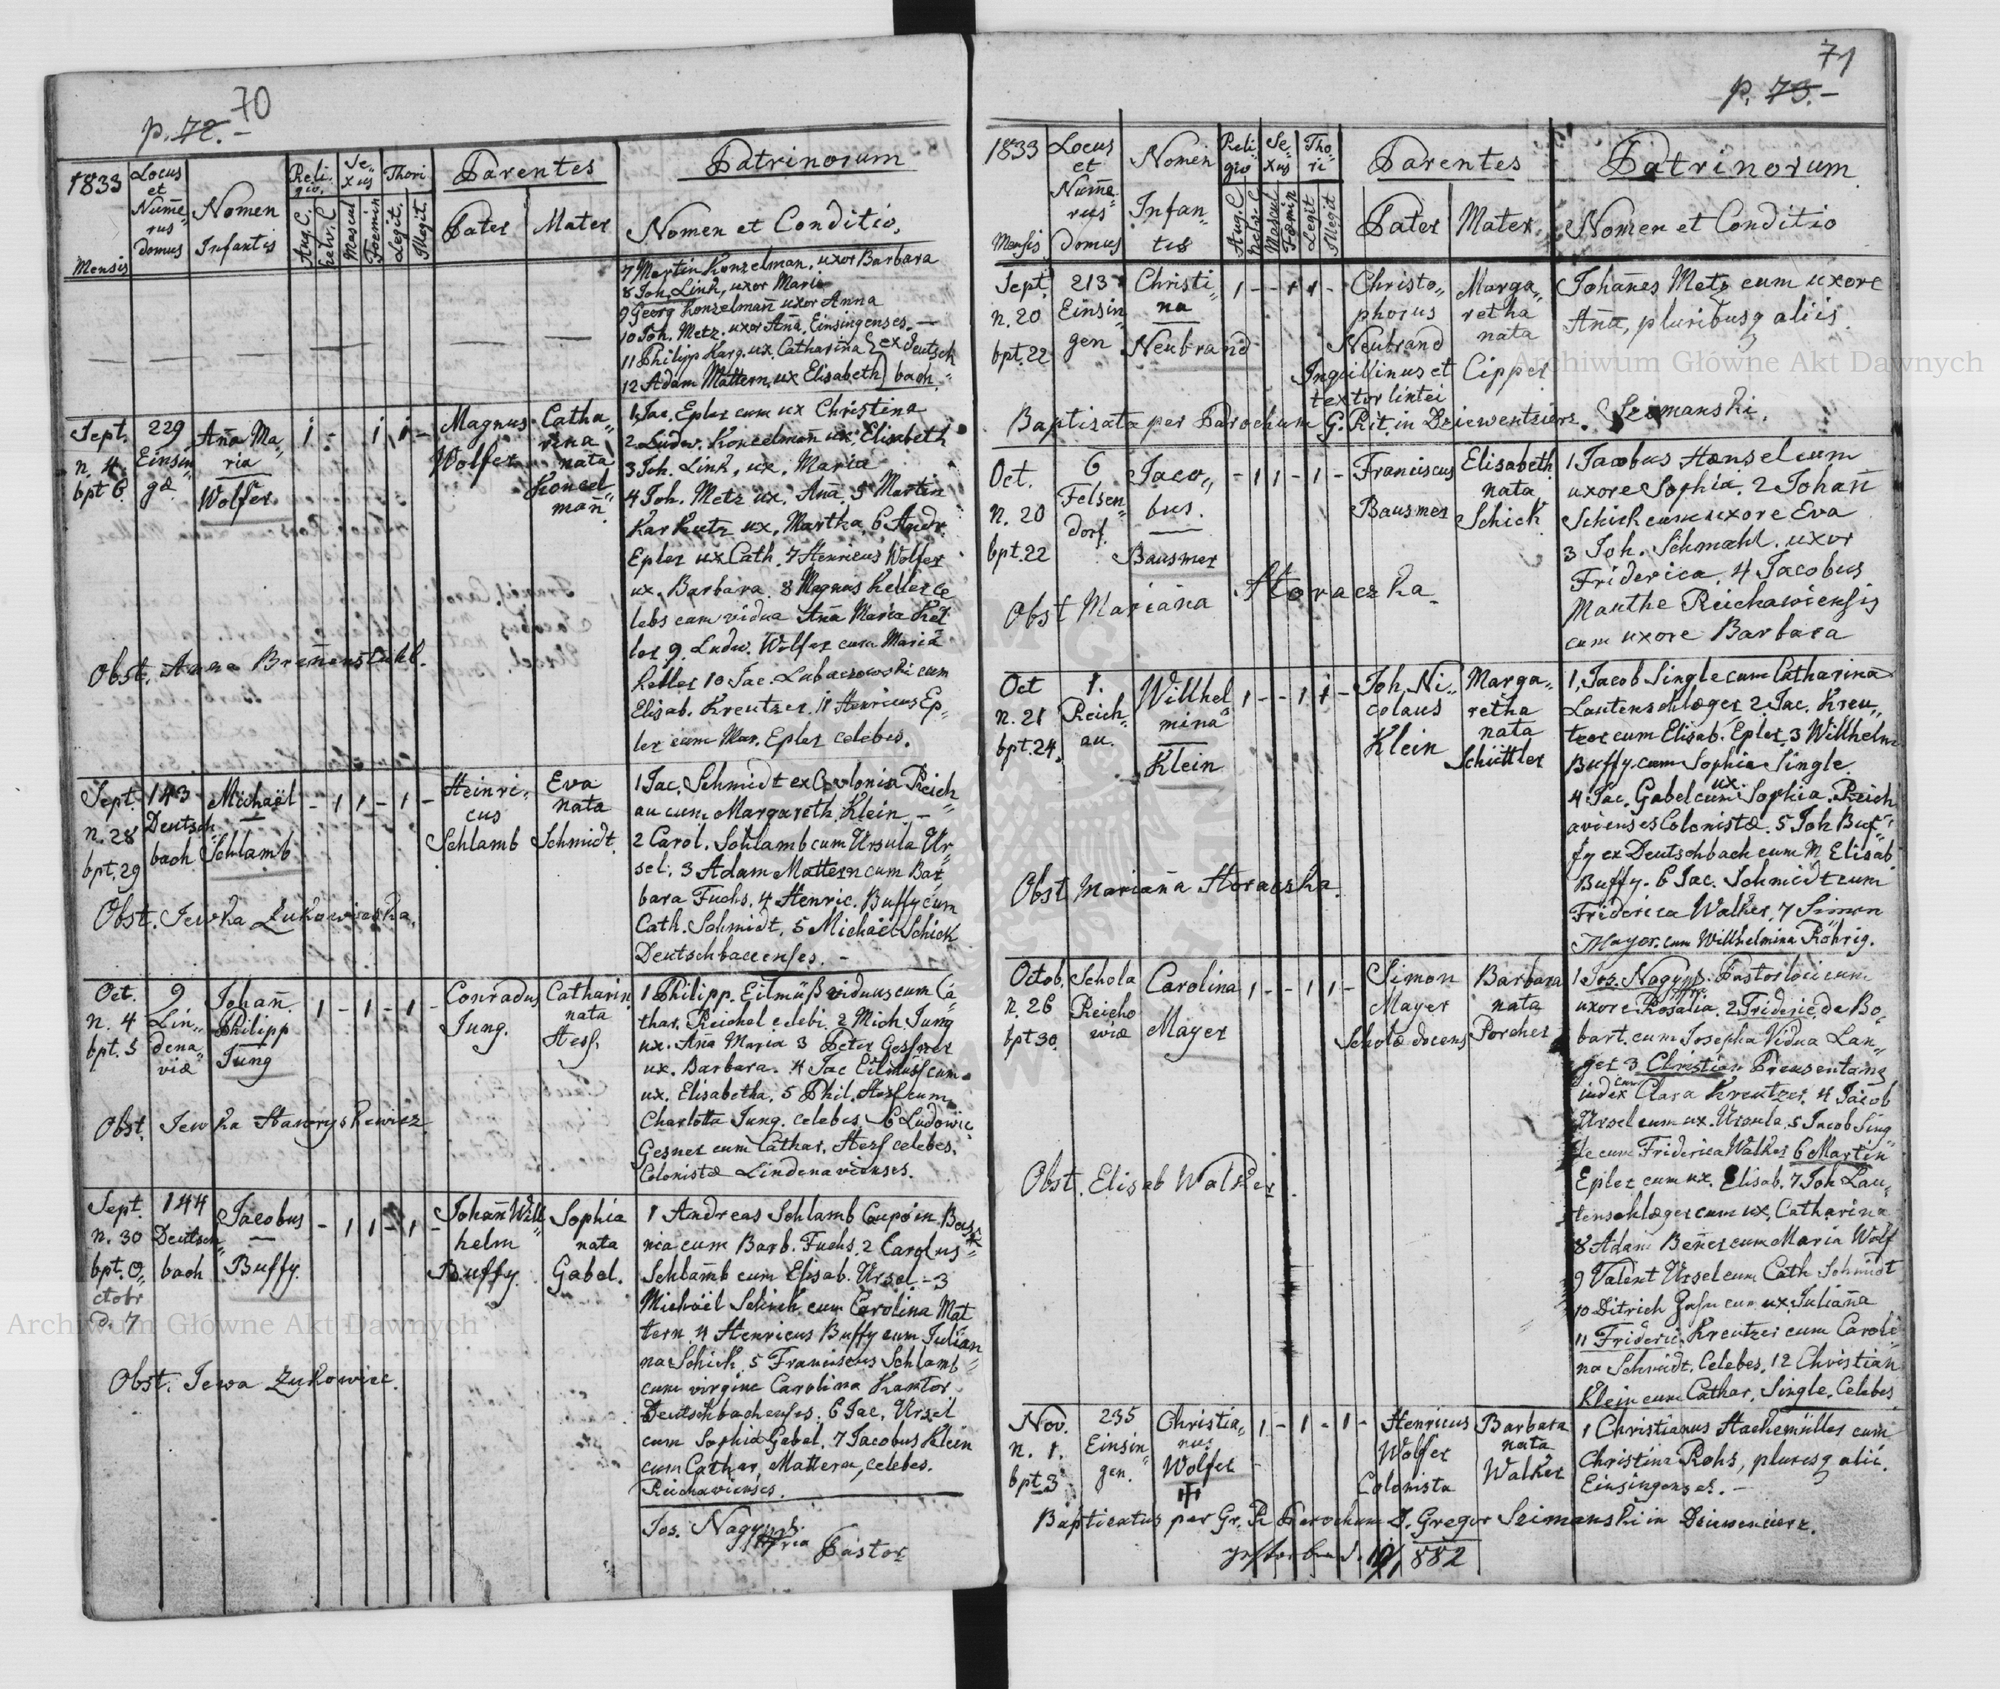 70
p. 72.-
1833
Mensis
Locus
et
Nume
rus
domus
Nomen
Infantis
Reli.
gio.
Aug. C.
helv. C
Se-
xus
Mascul
Foemin
Thori
Legit.
Illegit.
Parentes
Pater
Mater
Patrinorum
Nomen et Conditio.
7 Martin Konzelman, uxor Barbara
8 Joh. Link, uxor Maria
9 Georg Konzelman uxor Anna
10 Joh. Metz. uxor Aña, Einsingenses. —
11 Philipp Karg. ux. Catharina } ex Deutsch
12 Adam Mattern, ux Elisabeth } bach.
Sept.
n. 4.
bpt 6.
229
Einsin
gæ.
Aña Ma„
ria
Wolfer
1 - 1 1 -
Magnus
Wolfer
Catha„
rina
nata
Koncel„
mañ
1 Jac. Epler cum ux Christina
2 Ludw. Koncelmañ ux. Elisabeth
3 Joh. Link, ux. Maria
4 Joh. Metz ux. Aña 5 Martin
Karkutz ux. Martha, 6 Andr.
Epler ux Cath. 7 Henricus Wolfer
ux. Barbara. 8 Magnus Keller ce
lebs cum vidua Aña Maria Kel
ler 9. Ludw. Wolfer cum Maria
Keller 10 Jac. Lubaczowski cum
Elisab. Kreutzer. 11 Henricus Ep„
ler cum Mar. Epler celebes.
Obst. Anna Breñenstuhl.
Sept.
n. 28
bpt. 29
143
Deutsch
bach
Michaël
Schlamb
- 1 1 - 1 -
Heinri„
cus
Schlamb
Eva
nata
Schmidt.
1 Jac. Schmidt ex Colonia Reich„
au cum Margareth. Klein. —
2 Carol. Schlamb cum Ursula Ur„
sel. 3 Adam Mattern cum Bar
bara Fuchs. 4 Henric. Buffy cum
Cath. Schmidt. 5 Michaël Schick
Deutschbacenses. —
Obst. Jewka Żukowieczka.
Oct.
n. 4
bpt. 5
9
Lin„
dena„
viæ
Johañ
Philipp
Jung
1 - 1 - 1 -
Conradus
Jung.
Catharin
nata
Hess.
1 Philipp. Eilmüß viduus cum Ca„
thar. Reichel celebi. 2 Mich. Jung
ux. Aña Maria 3 Peter Gessner
ux. Barbara. 4 Jac Eilmuss cum
ux. Elisabetha. 5 Phil. Hess cum
Charlotta Jung. celebes. 6 Ludowic
Gesner cum Cathar. Hess celebes.
Colonistæ Lindenavienses.
Obst. Jewka Hawryskewicz
Sept.
n. 30
bpt. O„
ctobr
d. 7
144
Deutsch„
bach
Jacobus
Buffy.
- 1 1 - 1 -
Johañ Will
helm
Buffy.
Sophia
nata
Gabel.
1 Andreas Schlamb
nia cum Barb. Fuchs. 2 Carolus
Schlamb cum Elisab. Ursel - 3
Michaël Schick cum Carolina Mat
tern. 4 Henricus Buffy cum Julian
na Schick. 5 Franciscus Schlamb
cum virgine Carolina Kantor
Deutschbachenses. 6 Jac. Ursel
cum Sophia Gabel. 7 Jacobus Klein
cum Cathar. Mattern, celebes.
Reichavienses.
Obst. Jewa Żukowiec.
Jos. Nagy
Pastor
71
p. 73.-
1833
Mensis
Locus
et
Nume„
rus
domus
Nomen
Infan„
tis
Reli„
gio
Aug. C
helv. C
Se„
xus
Mascul
Fœmin
Tho„
ri
Legit
Illegit
Parentes
Pater
Mater.
Patrinorum
Nomen et Conditio
Sept.
n. 20
bpt. 22
213
Einsin„
gen
Christi„
na
Neubrand
1 - - 1 1 -
Christo„
phorus
Neubrand
Inquilinus et
textor lintei
Marga„
retha
nata
Cipper
Johañes Metz cum uxore
Aña, pluribusq aliis.
Baptisata per Parochum G. Rit. in Dziewentzierz. Szimanski.
Oct.
n. 20
bpt. 22
6
Felsen„
dorf.
Jaco„
bus.
Bausmer
- 1 1 - 1 -
Franciscus
Bausmer
Elisabeth
nata
Schick
1 Jacobus Hænsel cum
uxore Sophia. 2 Johañ
Schick cum uxore Eva
3 Joh. Schmahl. uxor
Friderica. 4 Jacobus
Manthe Reichawiensis
cum uxore Barbara
Obst Mariana Horaczka.
Oct
n. 21
bpt. 24.
1.
Reich„
au.
Willhel
mina
Klein
1 - - 1 1 -
Joh. Ni„
colaus
Klein
Marga„
retha
nata
Schüttler
1, Jacob Single cum Catharina
Lautenschlæger 2 Jac. Kreu„
tzer cum Elisab. Epler 3 Willhelm
Buffy cum Sophia Single
4 Jac. Gabel cum ux. Sophia. Reich
avienses Colonistæ. 5 Joh Buf„
fy ex Deutschbach cum M Elisab
Buffy. 6 Jac. Schmidt cum
Friderica Walker. 7 Simon
Mayer. cum Willhelmina Röhrig.
Obst Mariaña Horaczka
Octob.
n. 26
bpt 30.
Schola
Reicho
wiæ
Carolina
Mayer
1 - - 1 1 -
Simon
Mayer
Scholæ docens
Barbara
nata
Porcher
1 Jos. Nagy Pastor loci cum
uxore Rosalia. 2. Frideric. de Bo„
bart. cum Josepha Vidua Lan„
ger 3. Christian Preusentanz
iudex cum Clara Kreutzer. 4 Jacob
Ursel cum ux. Ursula. 5 Jacob Sing„
le cum Friderica Walker 6 Martin
Epler cum ux. Elisab. 7 Joh Lau„
tenschlæger cum ux. Catharina
8 Adam Beñer cum Maria Wolf
9 Valent Ursel cum Cath Schmidt
10 Ditrich cum ux. Juliaña
11 Frideric. Kreutzer cum Caroli„
na Schmidt. Celebes. 12 Christian
Klein cum Cathar. Single. Celebes
Obst. Elisab Walker.
Nov.
n. 1.
bpt 3
235
Einsin„
gen.
Christia„
nus
Wolfer
1 - 1 - 1 -
Henricus
Wolfer
Colonista
Barbara
nata
Walker
1 Christianus Hachemüller cum
Christina Rohs, pluresq alii.
Einsingenses. —
Baptizatus per Gr. R Parochum D. Gregor Szimanski in
gestorben d. 882
Archiwum Główne Akt Dawnych
Archiwum Główne Akt Dawnych